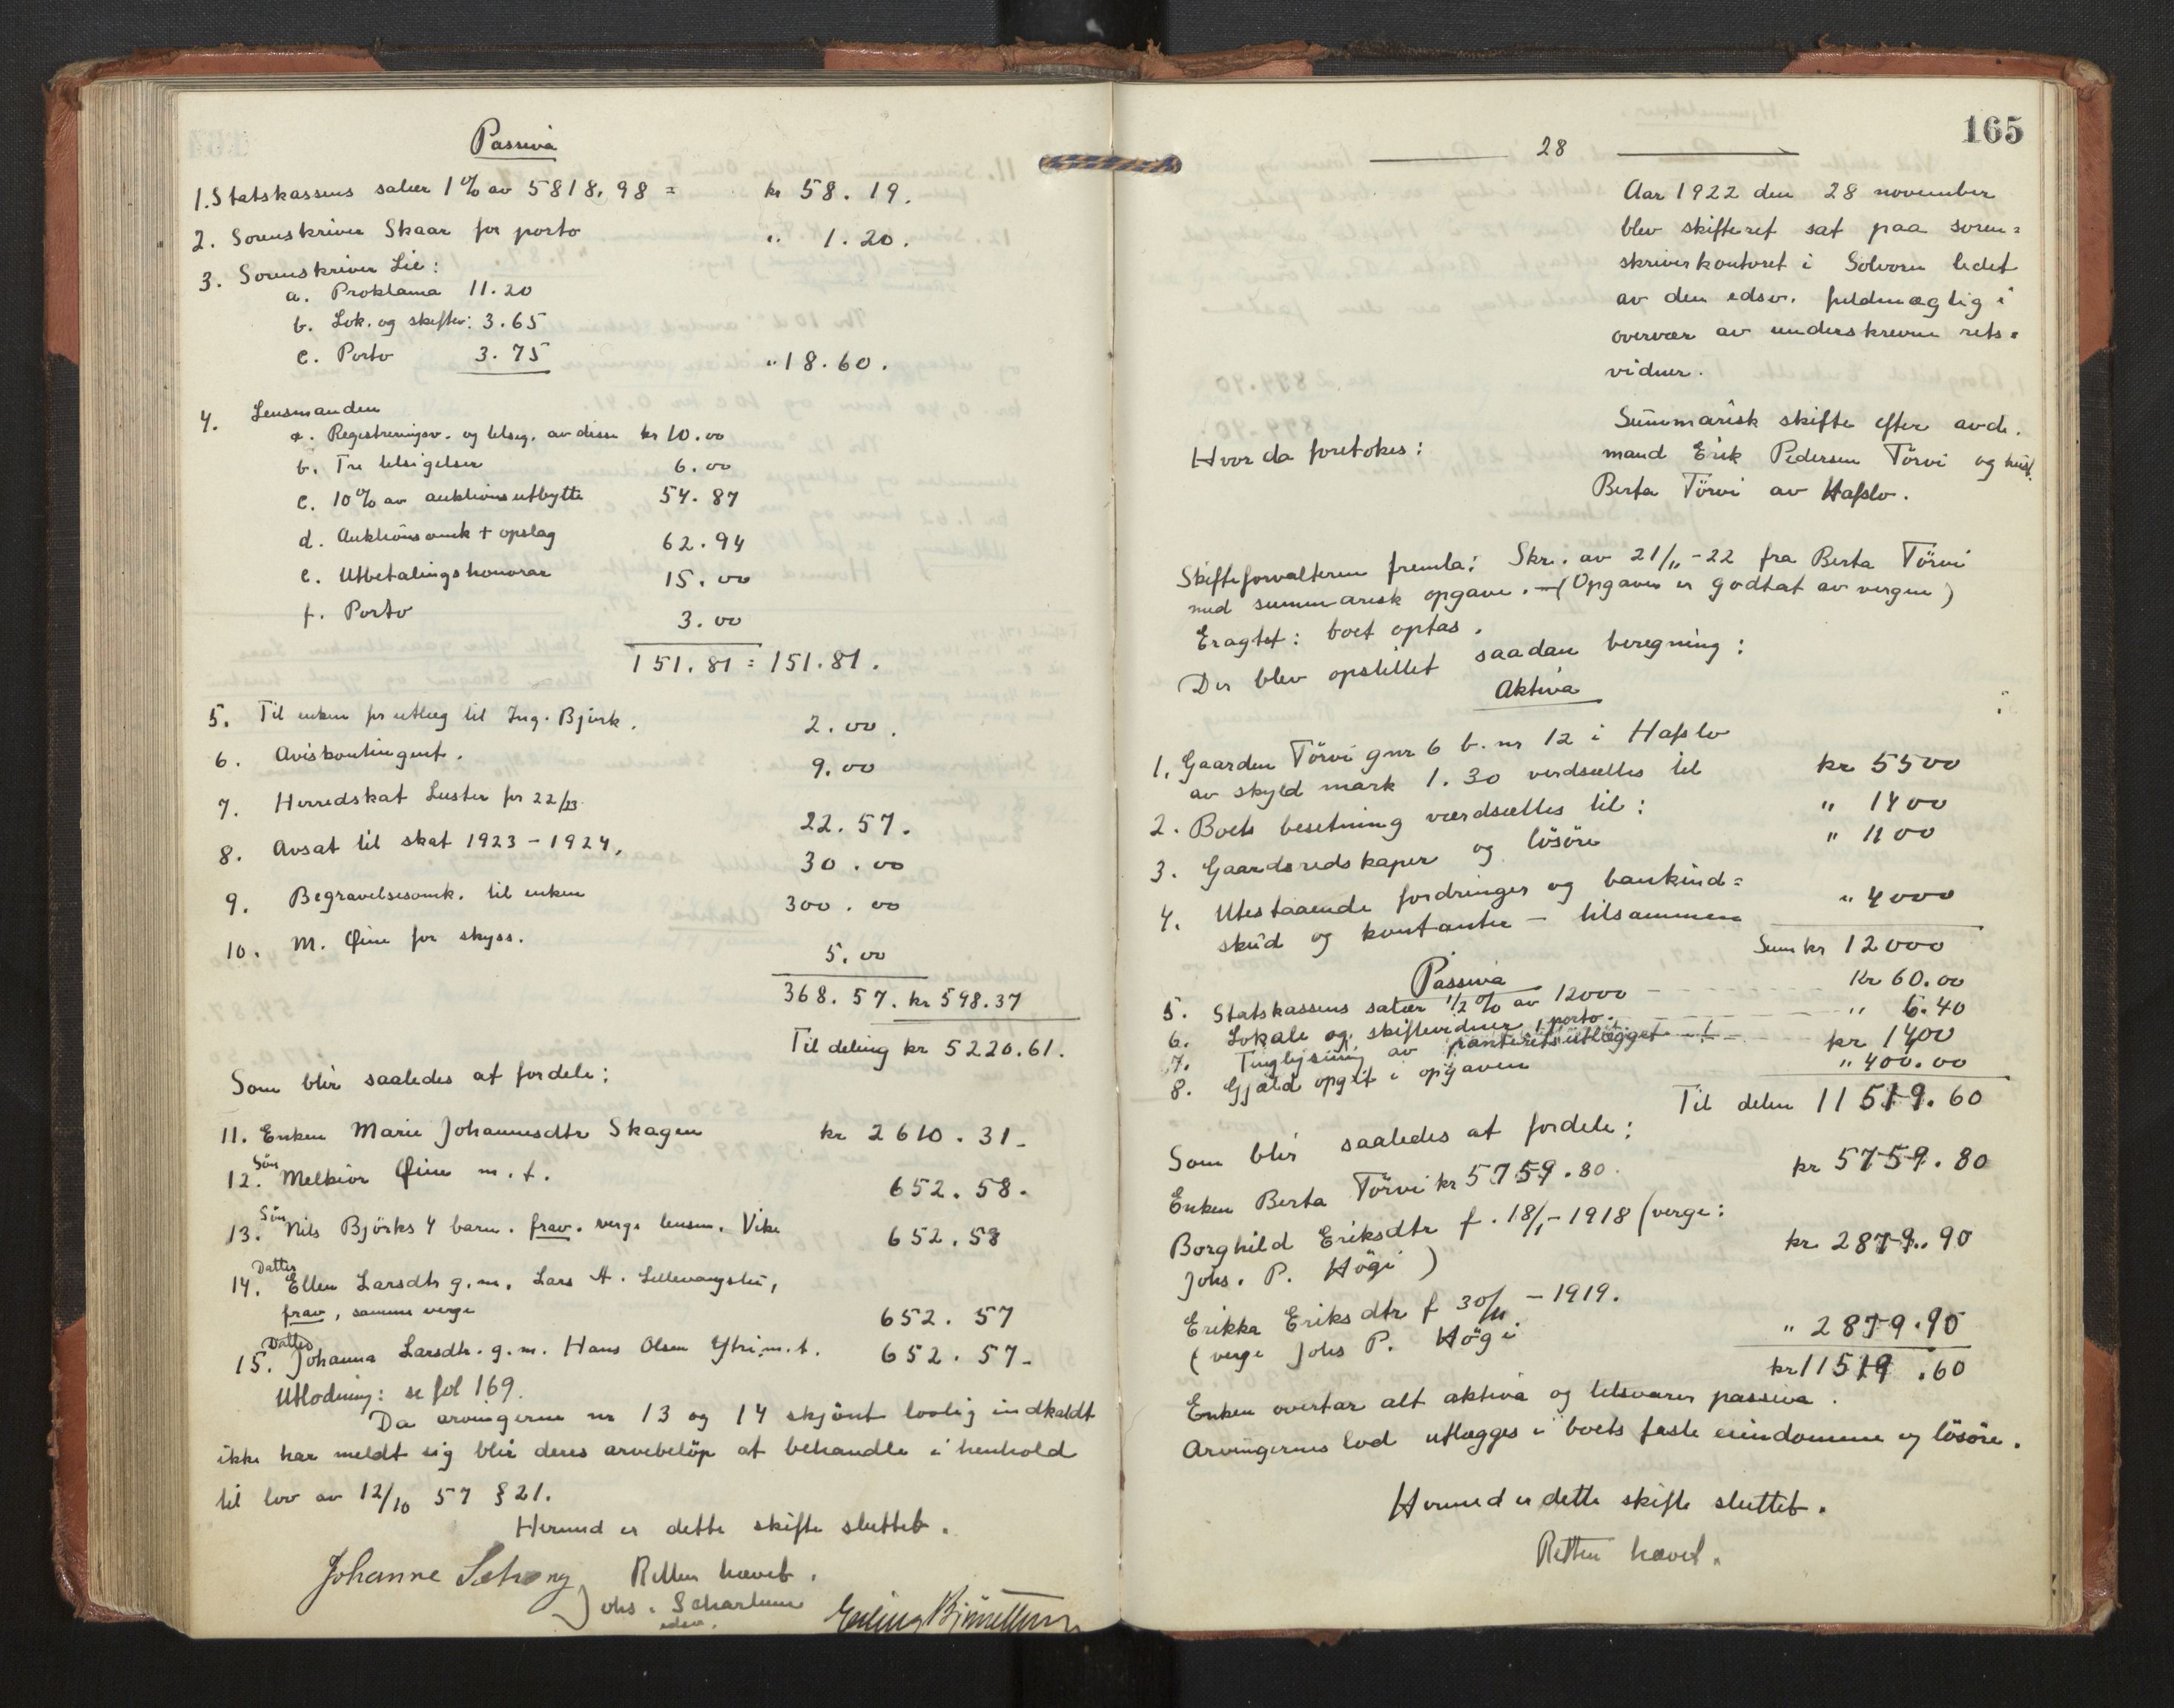 Passiva
1. Statskassens salær 1% av 5818,98 = kr 58.19.
2. Sorenskriver Skaar for porto " 1.20.
3. Sorenskriver Lie:
a. Proklama 11.20
b. Lok. og skiftev: 3.65
c. Porto 3.75 " 18.60.
4. Lensmanden
a. Registreringsv. og tilsig. av disse kr 10.00
b. Tre tilsigelser 6.00
c. 10% av auktionsutbytte 54.87
d. Auktionsomk + opslag 62.94
e. Utbetalingshonorar 15.00
f. Porto 3.00
151.81 = 151.81.
5. Til enken for utlæg til Ing. Bjørk. 2.00.
6. Aviskontingent. 9.00
7. Herredskat Luster for 22/23 22.57.
8. Avsat til skat 1923-1924. 30.00
9. Begravelsesomk. til enken 300.00
10. M. Øine for skyss. 5.00
368.57. kr 598.37
Til deling kr 5220.61.
Som blir saaledes at fordele:
11. Enken Marie Johannesdtr Skagen kr 2610.31-
12. Søn Melkior Øine m.t. 652.58.
13. Søn Nils Björks 4 barn. frav. verge lensm. Vike 652.58
Datter
14. Ellen Larsdtr g.m. Lars A. Lillevangstu,
frav, samme verge 652.57
Datter
15. Johanna Larsdtr. g.m. Hans Olsen Ytri m.t. 652.57-
Utlodning: se fol 169.
Da arvingerne nr 13 og 14 skjönt lovlig indkaldt
ikke har meldt sig blir deres arvebelöp at behandle i henhold
til lov av 12/10 57 § 21.
Hermed er dette skifte sluttet.
Retten hævet.
Johanne
Johs. Scharlum
edsv.
Erling
165
28
Aar 1922 den 28 november
blev skifteret sat paa soren=
skriverkontoret i Solvorn ledet
av den edsv. fuldmægtig i
overvær av underskrevne rets=
vidner.
Hvor da foretokes:
Summarisk skifte efter avd.
mand Erik Pedersen Törvi og hust.
Berta Törvi av Hafslo.
Skifteforvalteren fremla: Skr. av 21/11-22 fra Berta Törvi
med summarisk opgave. - (Opgaven er godtat av vergen)
Eragtet: boet optas.
Der blev opstillet saadan beregning:
Aktiva
1. Gaarden Törvi gnr 6 b.nr 12 i Hafslo
av skyld mark 1.30 verdsættes til kr 5500
2. Boets besetning værdsættes til: " 1400
3. Gaardsredskaper og lösöre " 1100
4. Utestaaende fordringer og bankind=
skud og kontanter - tilsammen " 4000
Sum kr 12000
Passiva
5. Statskassens salær 1/2% av 12000 Kr 60.00
6. Lokale og skiftevidner, porto. " 6.40
7. Tinglysning av panteretsutlægget kr 1400
8. Gjæld opgit i opgaven " 400.00
Til deling 11519.60
Som blir saaledes at fordele:
Enken Berta Törvi kr 5759.80. kr 5759.80
Borghild Eriksdtr f. 18/1-1918 (verge:
Johs. P. Högi) kr. 2879.90
Erikka Eriksdtr f 30/11-1919.
(verge Johs P. Högi " 2879.90
kr 11519.60
Enken overtar alt aktiva og tilsvarer passiva.
Arvingernes lod utlægges i boets faste eiendomme og lösöre.
Hermed er dette skifte sluttet.
Retten hævet.